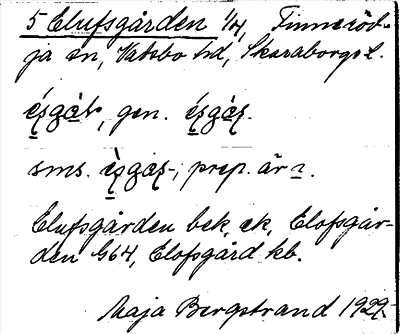 5 Elufsgården 1/4, Finneröd-
ja sn, Vadsbo hd, Skaraborgs l.
gen.
sms. prep. är
Elufsgården bek, ek, Elofsgår-
den G64, Elofsgård kb.
Maja Bergstrand 1929.